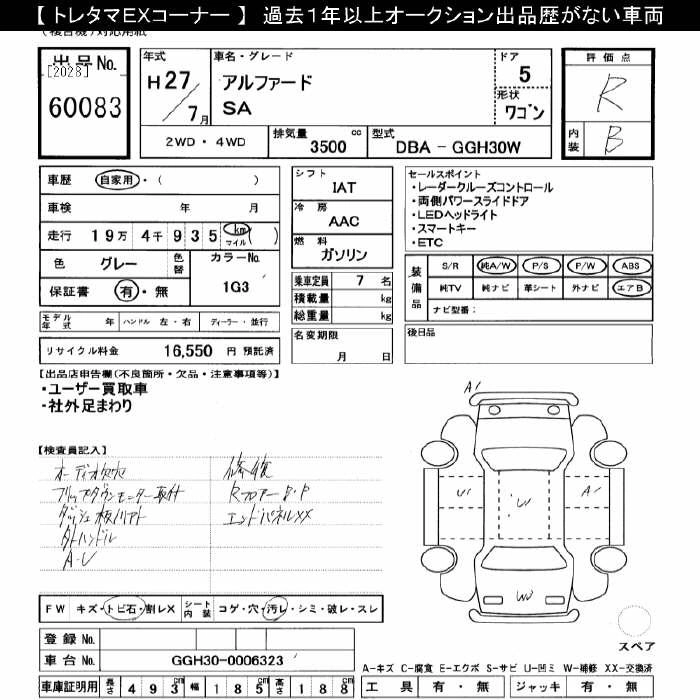 【 トレタマEXコーナー 】 過去1年以上オークション出品歴がない車両
出品No. [2028] 60083
年式 H27/7月
車名・グレード アルファード SA
ドア 5
形状 ワゴン
評価点 R
内装 B
2WD ・ 4WD
排気量 3500 cc
型式 DBA - GGH30W
車歴 自家用・( )
車検 年 月
走行 19万 4千 9 3 5 km マイル ( )
色 グレー 色替 カラーNo. 1G3
保証書 有・無
モデル年式 年 ハンドル 左・右 ディーラー・並行
リサイクル料金 16,550 円 預託済
シフト IAT
冷房 AAC
燃料 ガソリン
乗車定員 7 名
積載量 kg
総重量 kg
名変期限 月 日
セールスポイント
・レーダークルーズコントロール
・両側パワースライドドア
・LEDヘッドライト
・スマートキー
・ETC
装備品 S/R 純A/W P/S P/W ABS
純TV 純ナビ 革シート 外ナビ エアB
ナビ型番:
後日品
【出品店申告欄(不良箇所・欠品・注意事項等)】
・ユーザー買取車
・社外足まわり
【検査員記入】
オーディオ欠穴
フリップダウンモニター取付
ダッシュ板ハリアト
外ハンドル
A・U
修復
Rフロアー B・P
エンドパネルXX
A1
U1
W
A1
W
FW キズ・トビ石・割レX シート内装 コゲ・穴・汚レ・シミ・破レ・スレ
登録No.
車台No. GGH30-0006323
車庫証明用 長さ 493cm 幅 185cm 高さ 188cm
スペア
A-キズ C-腐食 E-エクボ S-サビ U-凹ミ W-補修 XX-交換済
工具 有・無 ジャッキ 有・無